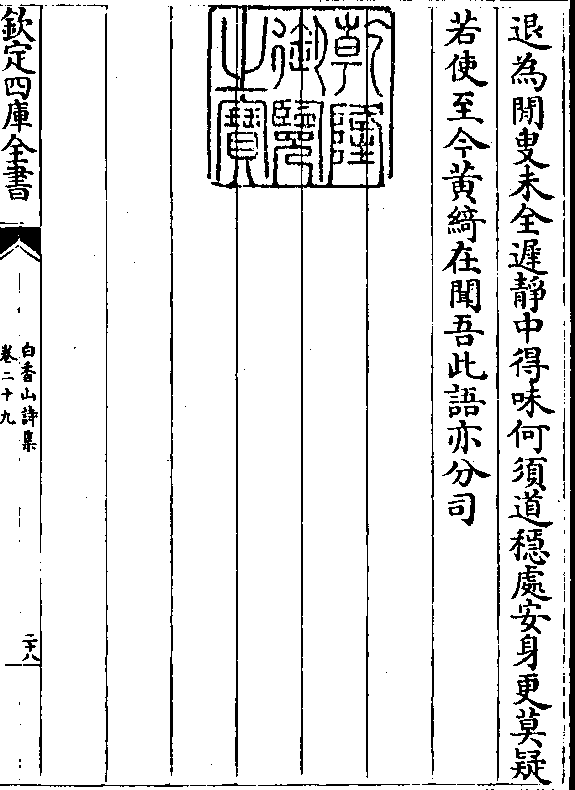 退為閒叟未全遲靜中得味何須道穩處安身更莫疑
若使至今黃綺在聞吾此語亦分司
乾隆
御覽
之寶
欽定四庫全書
白香山詩集
卷二十九
二十八